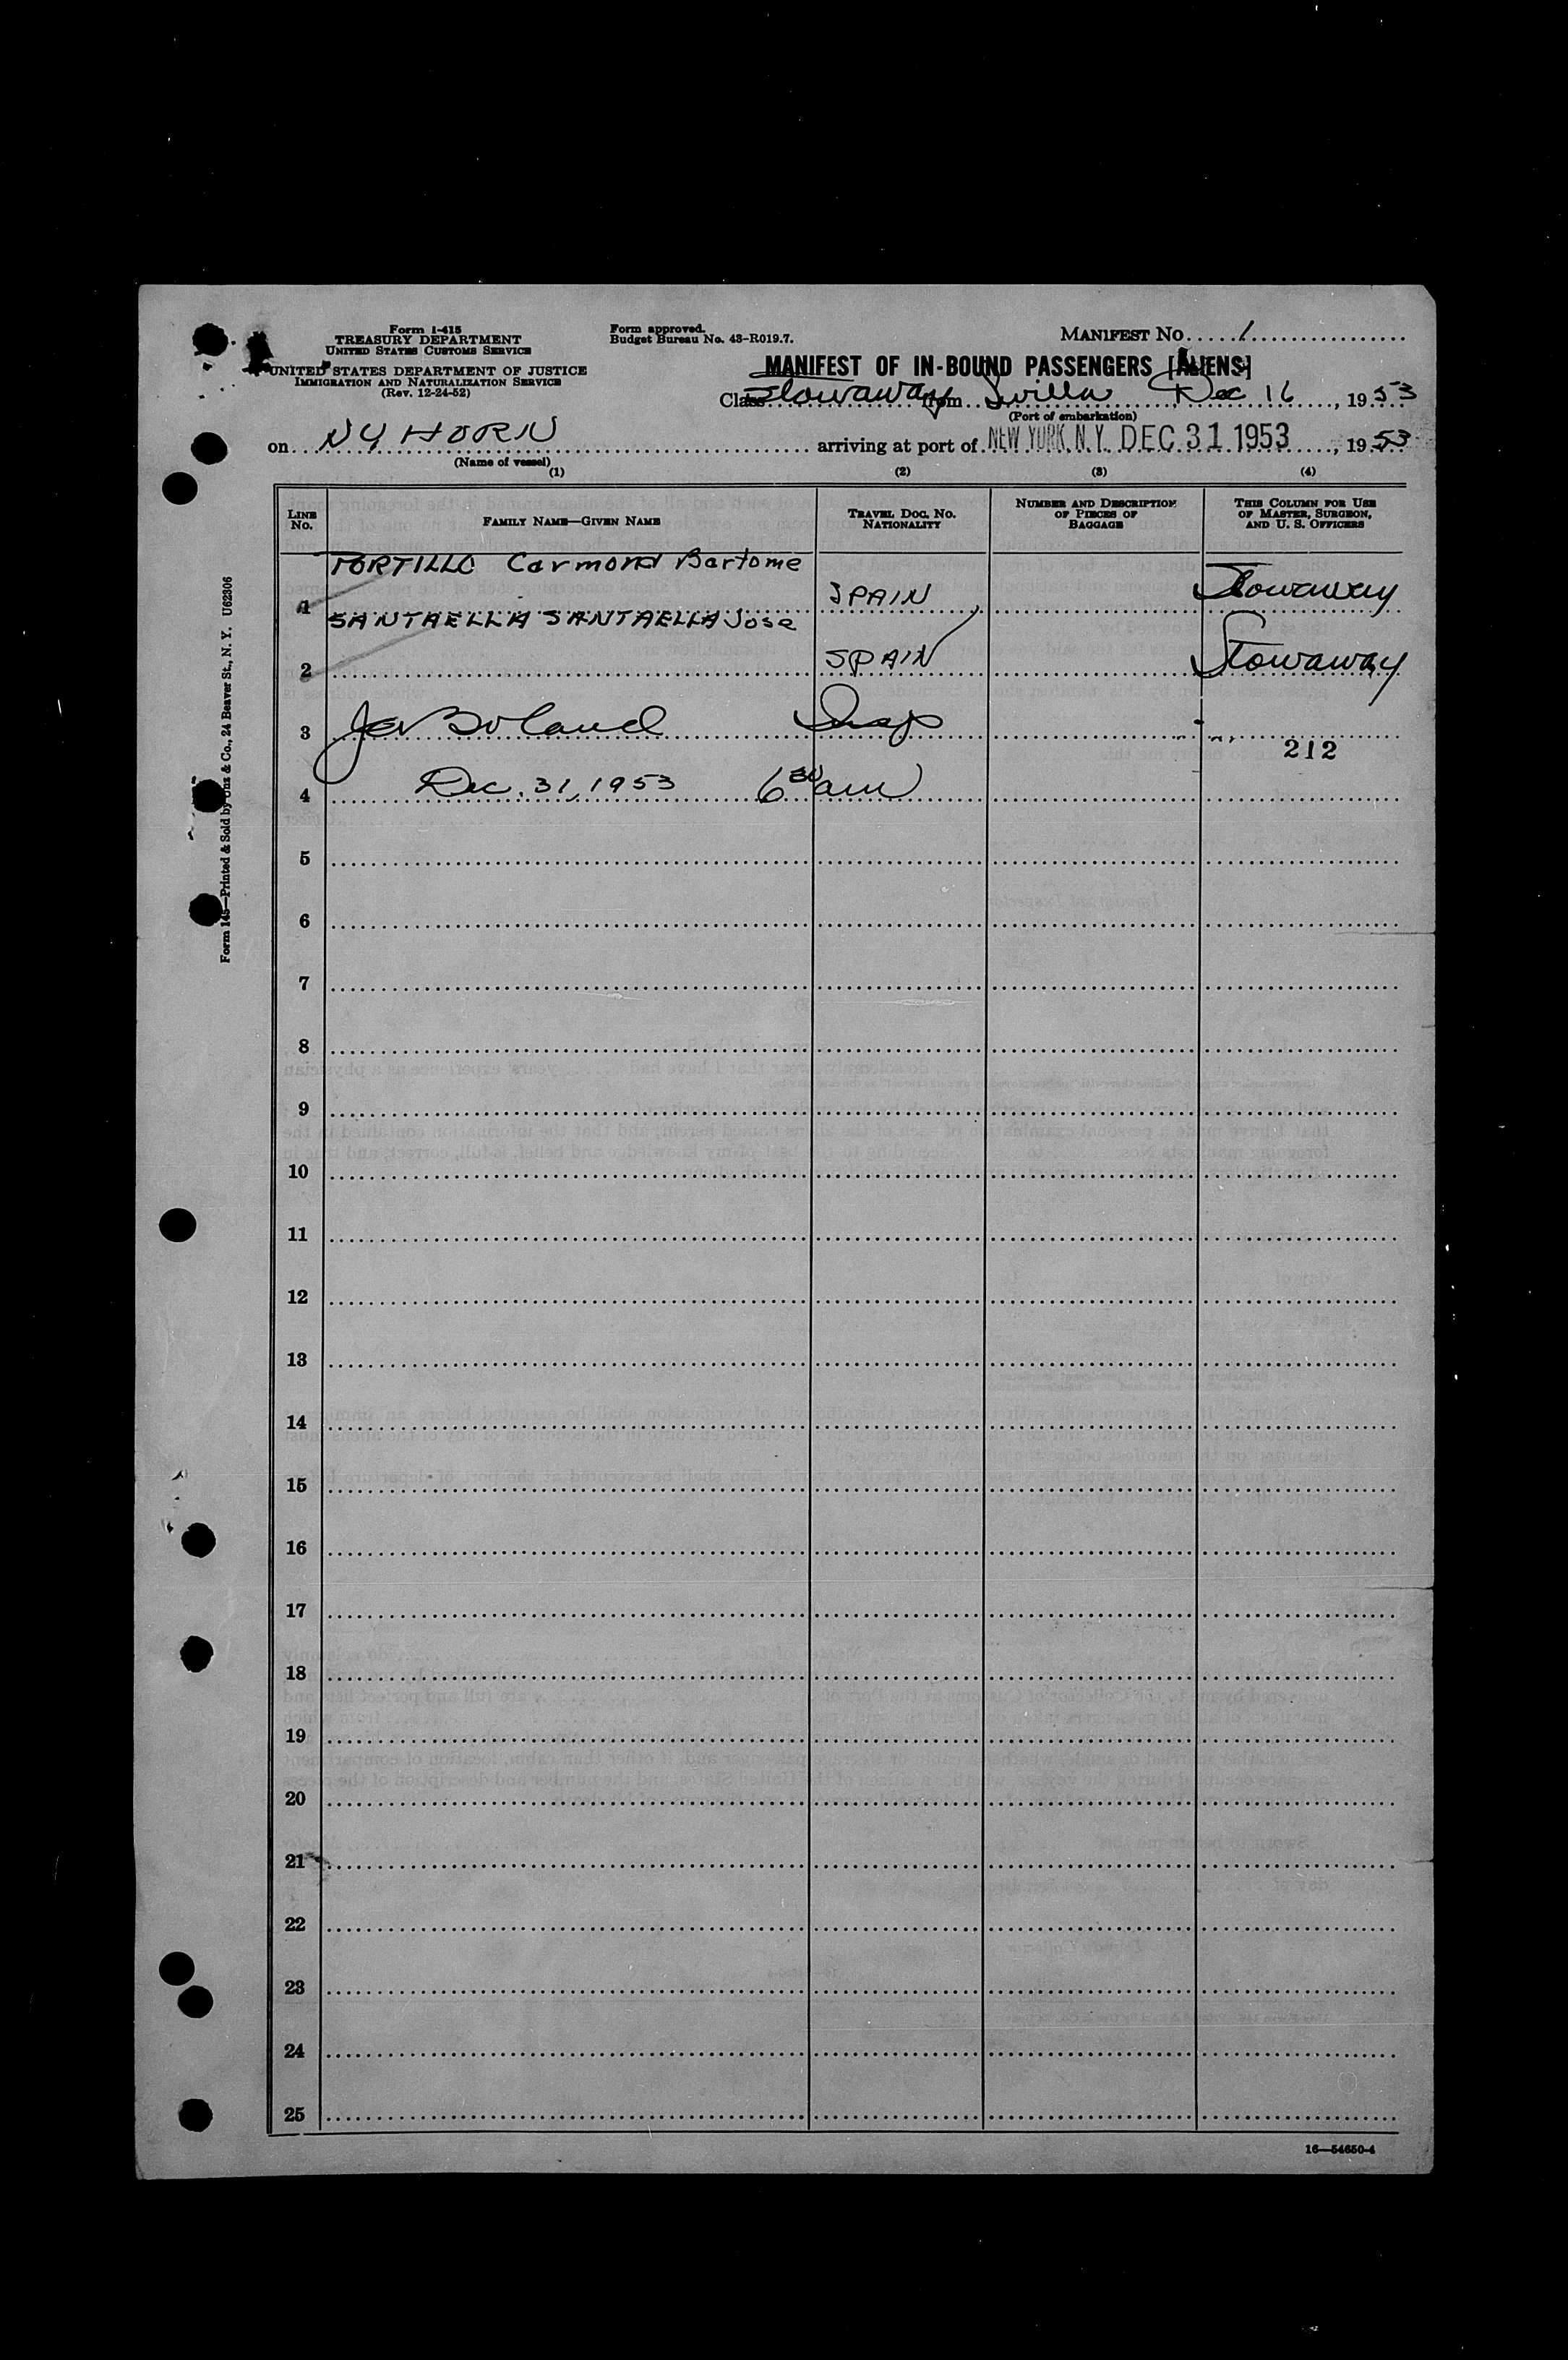 Form I-415
TREASURY DEPARTMENT
UNITED STATES CUSTOMS SERVICE
UNITED STATES DEPARTMENT OF JUSTICE
IMMIGRATION AND NATURALIZATION SERVICE
(Rev. 12-24-52)
Form approved.
Budget Bureau No. 43-R019.7.
MANIFEST NO. 1
MANIFEST OF IN-BOUND PASSENGERS [ALIENS]
Class Stowaway from Sevilla Dec 16, 1953
(Port of embarkation)
on NYHORN arriving at port of NEW YORK, N.Y. DEC 31 1953, 1953
(Name of vessel)
(1) (2) (3) (4)
LINE NO. FAMILY NAME—GIVEN NAME TRAVEL DOC. NO. NATIONALITY NUMBER AND DESCRIPTION OF PIECES OF BAGGAGE THIS COLUMN FOR USE OF MASTER, SURGEON, AND U. S. OFFICERS
1 PORTILLO Carmona Bartome SPAIN Stowaway
2 SANTAELLA SANTAELLA Jose SPAIN Stowaway
3 Boland Insp 212
4 Dec. 31, 1953 6 30 am
5
6
7
8
9
10
11
12
13
14
15
16
17
18
19
20
21
22
23
24
25
16—54650-4
Form 145—Printed & Sold by Unz & Co., 24 Beaver St., N. Y. U62306